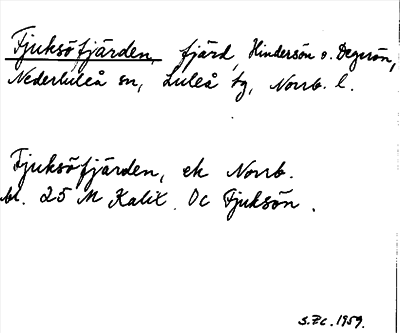 Fjuksöfjärden, fjärd, Hindersön o. Degerön,
Nederluleå sn, Luleå tg, Norrb. l.
Fjuksöfjärden, ek Norrb.
bl. 25 M Kalix. Oc Fjuksön.
S.Ec. 1959.